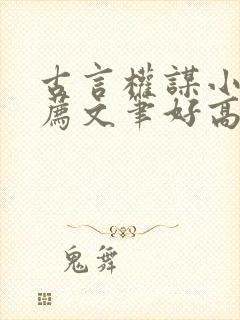 古言權謀小
薦文筆好高
鬼舞